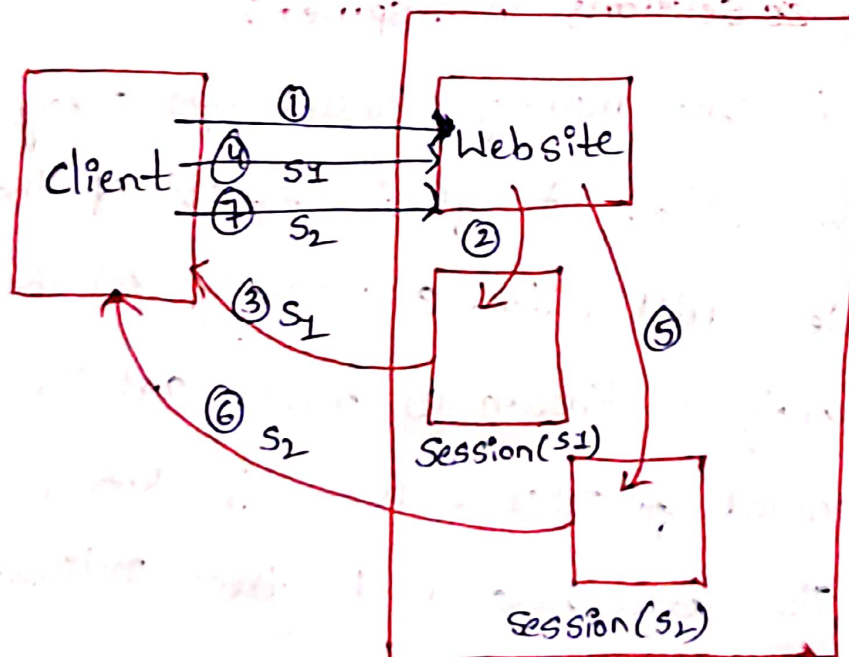 ①
Client
④
S1
Website
⑦
S2
②
③ S1
⑤
⑥
S2
Session(S1)
Session(S2)